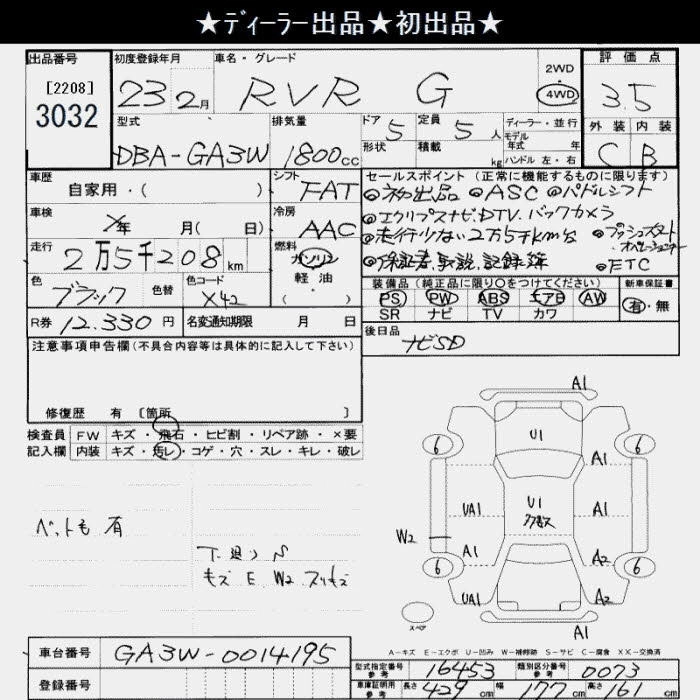 ★ﾃﾞｨｰﾗｰ出品★初出品★
出品番号
[2208]
3032
初度登録年月
23年2月
車名・グレード
RVR G
2WD
4WD
評価点
3.5
外装 内装
C B
型式
DBA-GA3W
排気量
1800cc
ドア 5
形状
定員 5人
積載 kg
ディーラー・並行
モデル年式 年
ハンドル 左・右
車歴
自家用・( )
シフト
FAT
車検
年 月( 日)
冷房
AAC
走行
2万5千208km
燃料
ガソリン
軽油
( )
色
ブラック
色替
色コード
X42
R券 12.330円
名変通知期限 月 日
セールスポイント(正常に機能するものに限ります)
◎初出品 ◎ASC ◎パドルシフト
◎エクリプスナビ.DTV.バックカメラ
◎走行少ない2万5千km台 ◎プッシュスタート
オペレーション
◎保証書.取説.記録簿 ◎ETC
装備品(純正品に限り○をつけてください)
PS PW ABS エアB AW
SR ナビ TV カワ
新車保証書
有・無
後日品
ナビSD
注意事項申告欄(不具合内容等は具体的に記入して下さい)
修復歴 有 〔箇所 〕
検査員 FW キズ・飛石・ヒビ割・リペア跡・×要
記入欄 内装 キズ・汚レ・コゲ・穴・スレ・キレ・破レ
ペット毛 有
キズ E.W2.スリキズ
A1
6
U1
6
A1
UA1
U1
A1
W2
A1
A2
6
6
UA1
A2
A1
スペア
A-キズ E-エクボ U-凹み W-補修跡 S-サビ C-腐食 XX-交換済
車台番号
GA3W-0014195
登録番号
型式指定番号
参考
16453
類別区分番号
参考
0073
車庫証明用
参考
長さ 429cm 幅 177cm 高さ 161cm